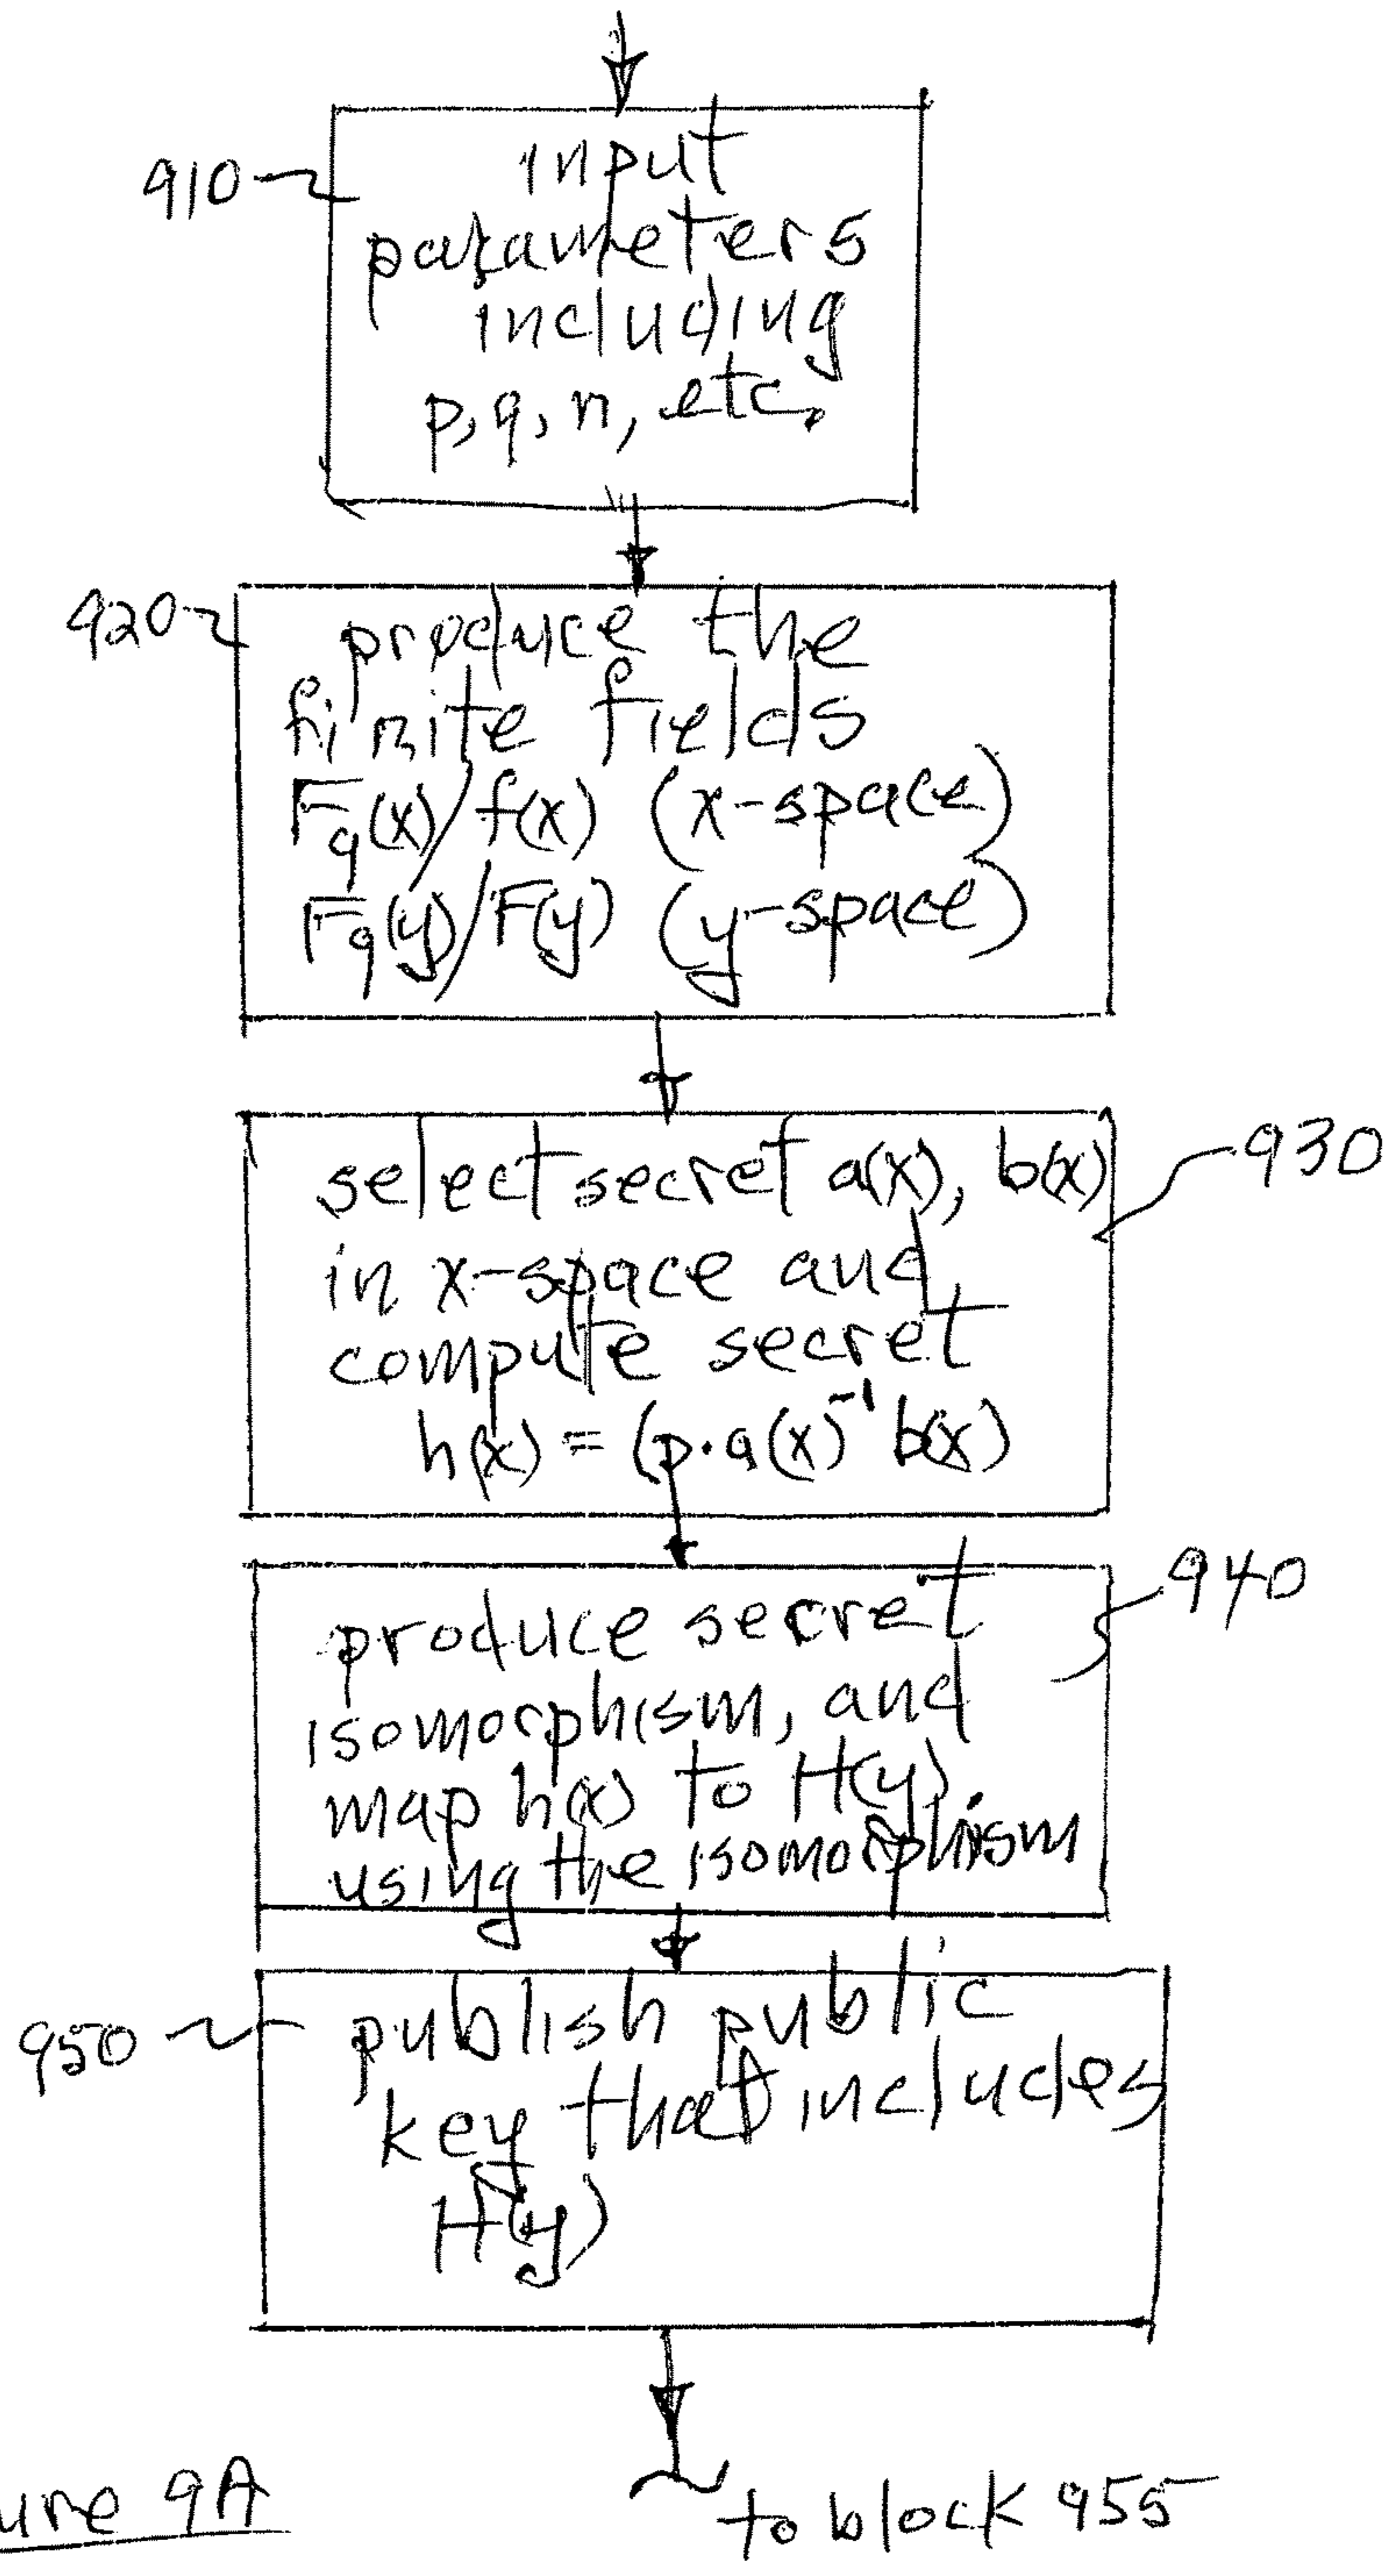 910
input
parameters
including
p, q, n, etc.
920
produce the
finite fields
Fq(x)/f(x) (x-space)
Fq(y)/F(y) (y-space)
930
select secret a(x), b(x)
in x-space and
compute secret
h(x) = (p·a(x)⁻¹ b(x)
940
produce secret
isomorphism, and
map h(x) to H(y)
using the isomorphism
950
publish public
key that includes
H(y)
to block 955
ure 9A